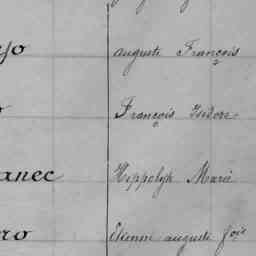 yo auguste François
o François Isidore
anec Hippolyte Marie
ro Etienne auguste fois